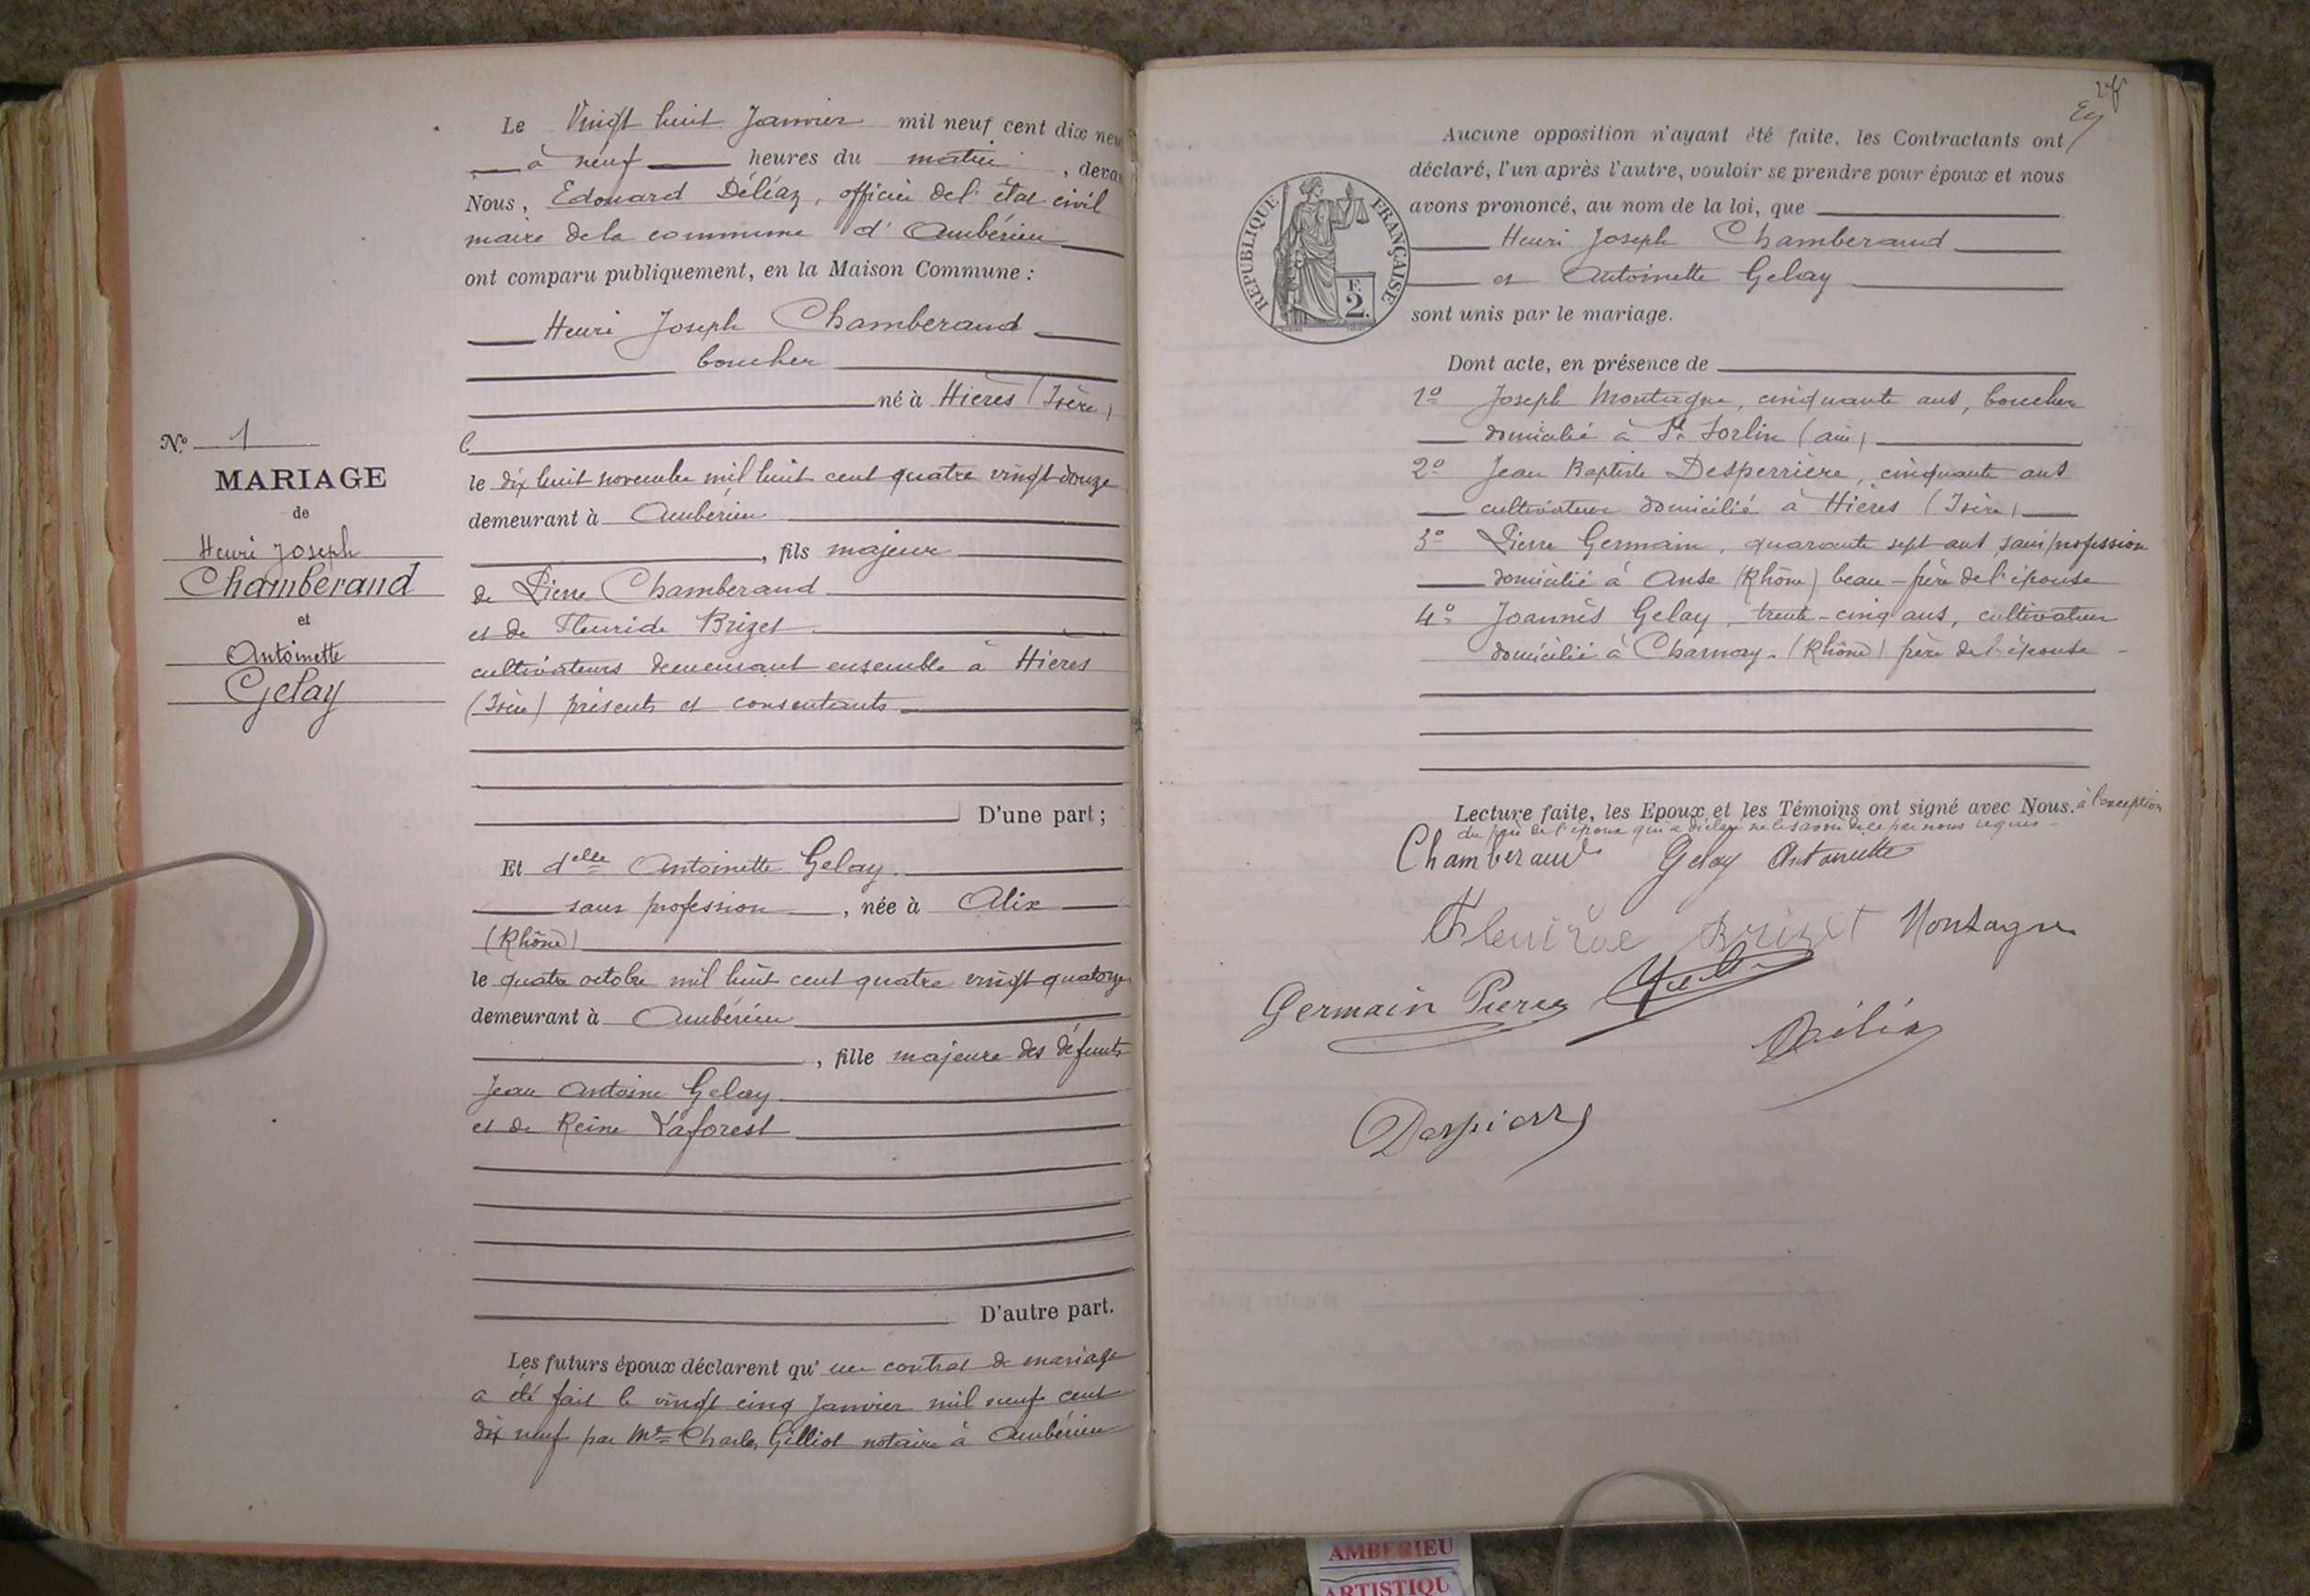 Le Vingt huit Janvier mil neuf cent dix neu
à neuf heures du matin, deva
Nous, Edouard Déléaz, officier de l'état civil
maire de la commune d'Ambérieu
ont comparu publiquement, en la Maison Commune :
Henri Joseph Chamberaud
boucher
né à Hières (Isère)
le dix huit novembre mil huit cent quatre vingt douze
demeurant à Ambérieu
, fils majeur
de Pierre Chamberaud
et de Fleuride Brizet
cultivateurs demeurant ensemble à Hières
(Isère) présents et consentants
D'une part ;
Et delle Antoinette Gelay
sans profession, née à Alix
(Rhône)
le quatre octobre mil huit cent quatre vingt quatorze
demeurant à Ambérieu
, fille majeure des défunts
Jean Antoine Gelay
et de Reine Laforest
D'autre part.
Les futurs époux déclarent qu'un contrat de mariage
a été fait le vingt cinq Janvier mil neuf cent
dix neuf par Me Charles Gilliot notaire à Ambérieu
No. 1
MARIAGE
de
Henri Joseph
Chamberaud
et
Antoinette
Gelay
Aucune opposition n'ayant été faite, les Contractants ont
déclaré, l'un après l'autre, vouloir se prendre pour époux et nous
avons prononcé, au nom de la loi, que
Henri Joseph Chamberaud
et Antoinette Gelay
sont unis par le mariage.
REPUBLIQUE FRANÇAISE
F.
2.
Dont acte, en présence de
1o Joseph Montagne, cinquante ans, boucher
domicilié à St Sorlin (ain)
2o Jean Baptiste Desperrière, cinquante ans
cultivateur domicilié à Hières (Isère)
3o Pierre Germain, quarante sept ans, sans profession
domicilié à Anse (Rhône) beau-frère de l'épouse
4o Joannès Gelay, trente-cinq ans, cultivateur
domicilié à Charnay (Rhône) frère de l'épouse
Lecture faite, les Epoux et les Témoins ont signé avec Nous. à l'exception
du père de l'époux qui a déclaré ne le savoir de ce par nous requis
Chamberaud Gelay Antoinette
Fleuride Brizet Montagne
Germain Pierre
Déléaz
AMBERIEU
ARTISTIQU